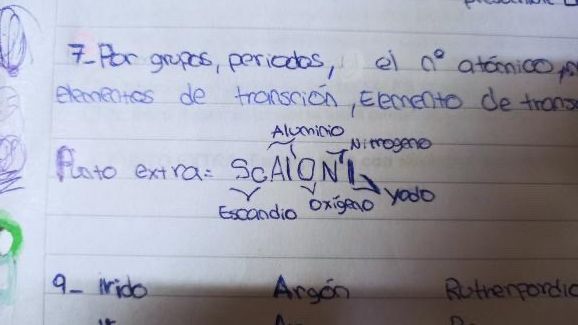 7- Por grupos, periodos, el nº atómico,
elementos de transción, Elemento de trans
Aluminio
Nitrogeno
Punto extra: ScAlONI
Escandio
Oxígeno
yodo
9- Irido Argón Rutherfordio